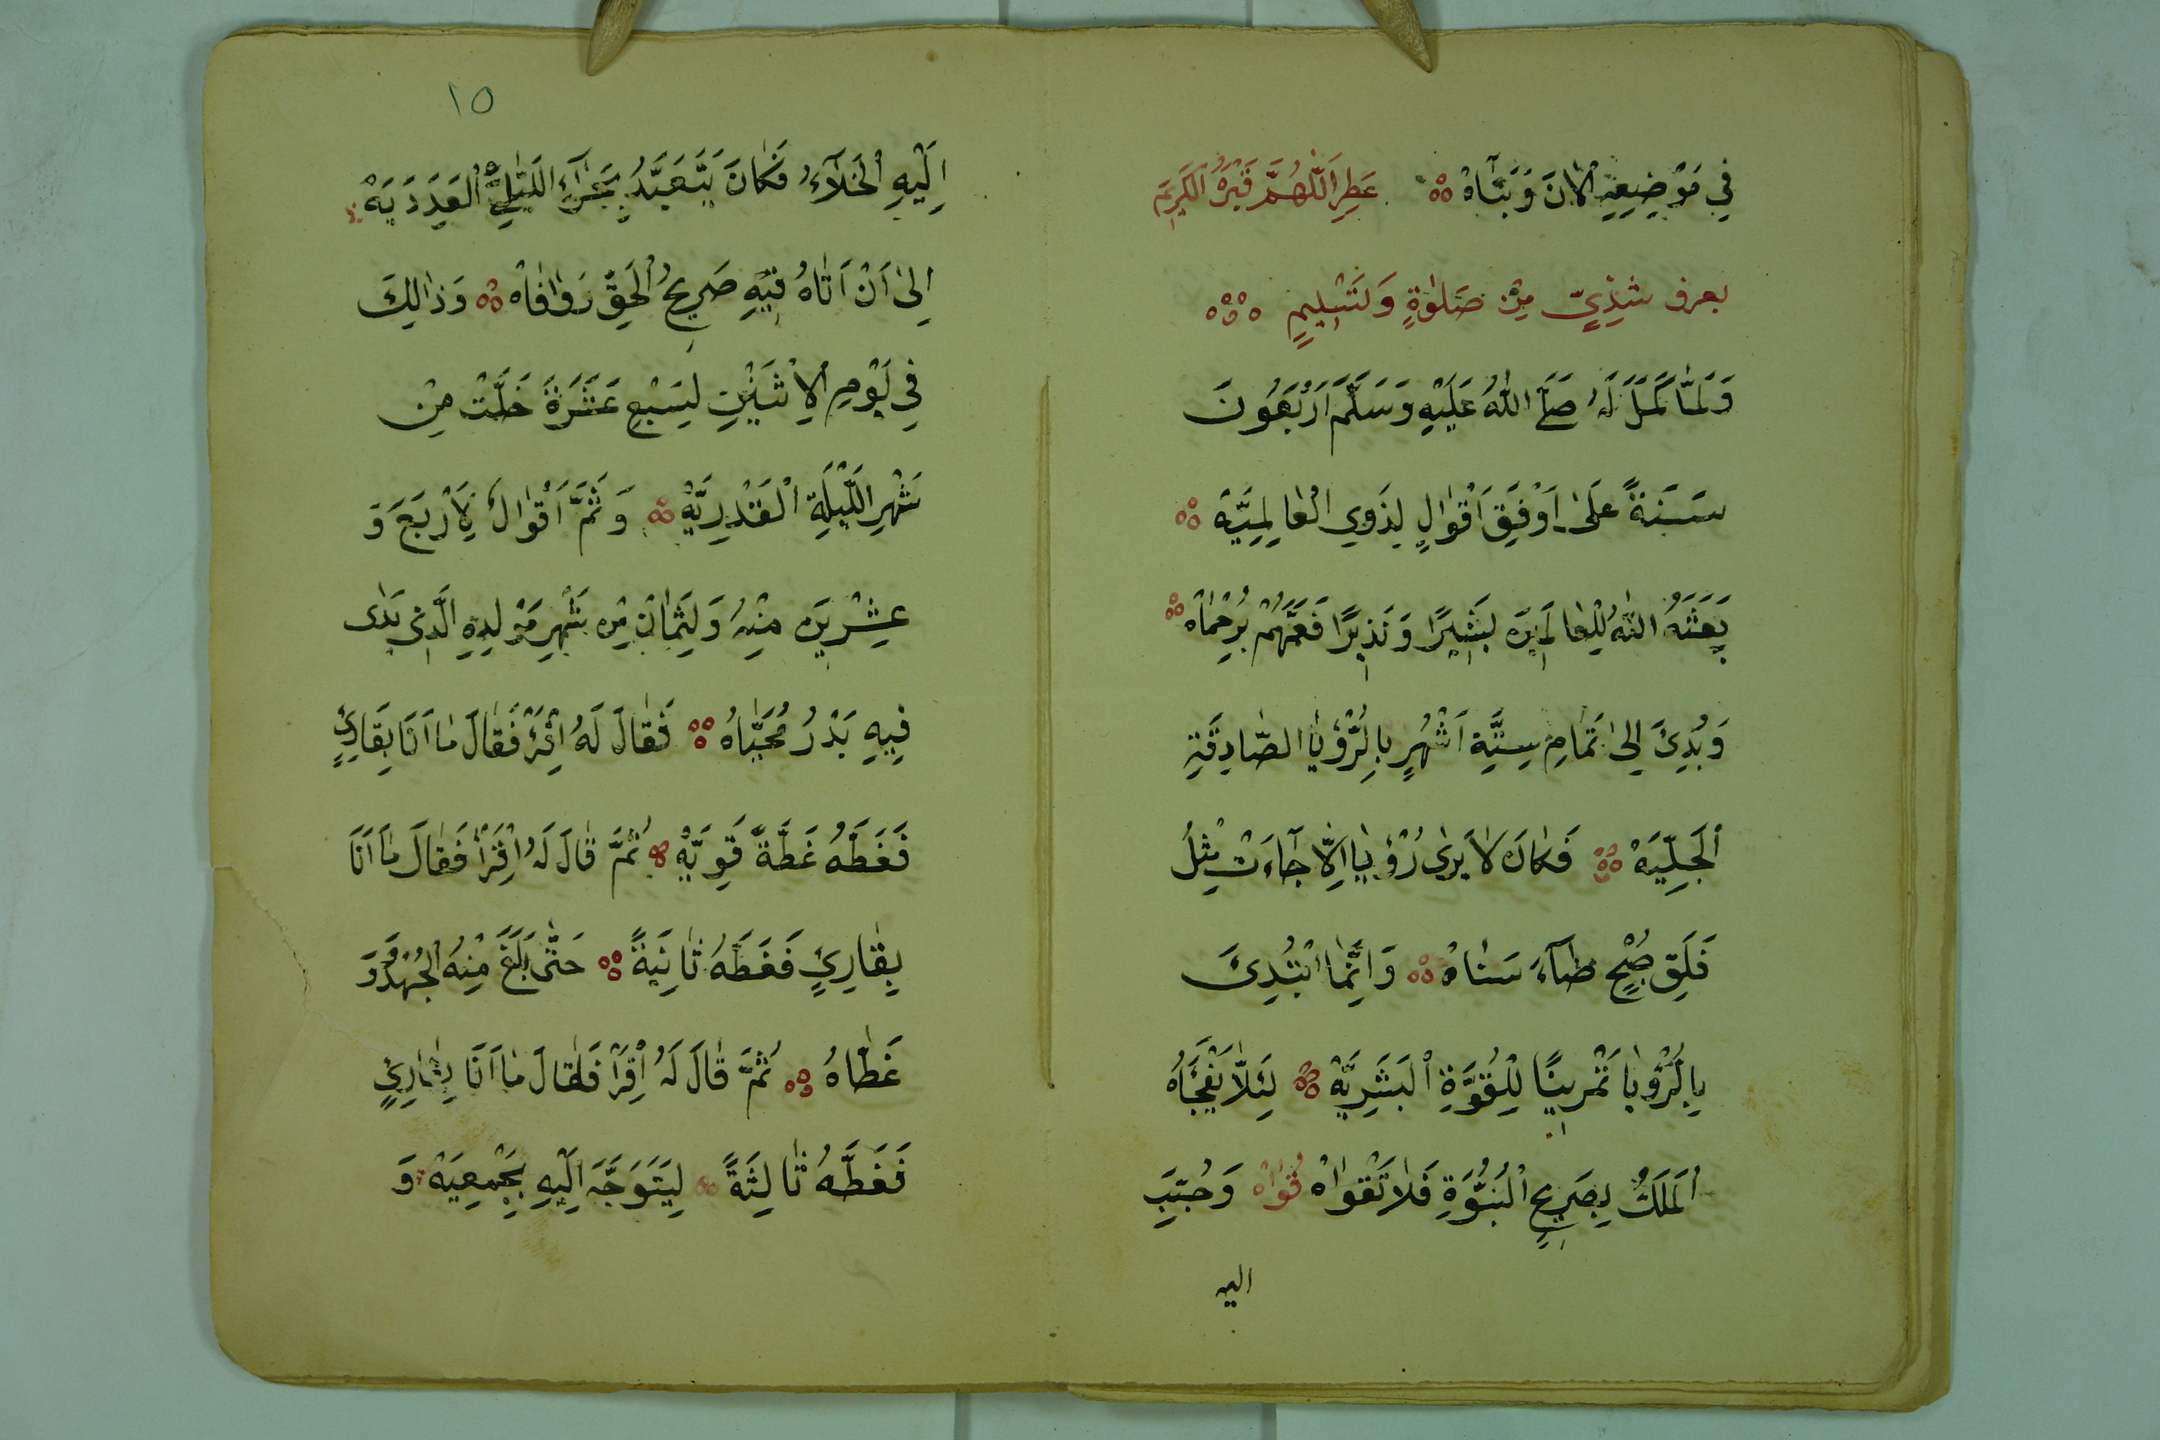 فِي مَوْضِعِهِ الْاٰنَ وَبَنَّاهْ عَطِرِ اللّٰهُمَّ قَبْرَهُ الْكَرِيمَ
بعرف شَذِيٍّ مِنْ صَلٰوةٍ وَتَسْلِيمٍ
وَلَمَّا كَمَلَ لَهُ صَلَّى اللّٰهُ عَلَيْهِ وَسَلَّمَ اَرْبَعُونَ
سَنَةً عَلٰى اَوْفَقِ اَقْوَالٍ لِذَوِي الْعَالِمِيَّةْ
بَعَثَهُ اللّٰهُ لِلْعَالَمِينَ بَشِيرًا وَنَذِيرًا فَعَمَّهُمْ بِرُحْمَاهْ
وَبُدِئَ اِلىٰ تَمَامِ سِتَّةِ اَشْهُرٍ بِالرُّؤْيَا الصَّادِقَةِ
الْجَلِيَّهْ فَكَانَ لَا يَرٰى رُؤْيَا اِلَّا جَآءَتْ مِثْلَ
فَلَقِ صُبْحٍ ضَآءَ سَنَاهْ وَاِنَّمَا ابْتُدِئَ
بِالرُّؤْيَا تَمْرِينًا لِلْقُوَّةِ الْبَشَرِيَّهْ لِئَلَّا يَفْجَأَهُ
الْمَلَكُ بِصَرِيحِ النُّبُوَّةِ فَلَا تَقْوَاهْ قُوَاهْ وَحُبِّبَ
اليه
١٥
اِلَيْهِ الْخَلَآءُ فَكَانَ يَتَعَبَّدُ بِحَرَاءَ اللَّيَالِيَ الْعَدَدِيَهْ
اِلىٰ اَنْ اَتَاهُ فِيْهِ صَرِيحُ الْحَقِّ وَوَافَاهْ وَذٰالِكَ
فِي يَوْمِ الْاِثْنَيْنِ لِسَبْعِ عَشَرَةَ خَلَتْ مِنْ
شَهْرِ اللَّيْلَةِ الْقَدْرِيَّهْ وَثَمَّ اَقْوَالٌ لِاَرْبَعَ وَ
عِشْرِينَ مِنْهُ وَلِثَمَانٍ مِنْ شَهْرِ مَوْلِدِهِ الَّذِي بَدٰى
فِيهِ بَدْرُ مُحَيَّاهُ فَقَالَ لَهُ اقْرَأْ فَقَالَ مَا اَنَا بِقَارِئٍ
فَغَطَّهُ غَطَّةً قَوِيَّهْ ثُمَّ قَالَ لَهُ اقْرَأْ فَقَالَ مَا اَنَا
بِقَارِئٍ فَغَطَّهُ ثَانِيَةً حَتّٰى بَلَغَ مِنْهُ الْجُهْدُ وَ
غَطَّاهُ ثُمَّ قَالَ لَهُ اقْرَأْ فَقَالَ مَا اَنَا بِقَارِئٍ
فَغَطَّهُ ثَالِثَةً لِيَتَوَجَّهَ اِلَيْهِ بِجَمْعِيَهْ وَ